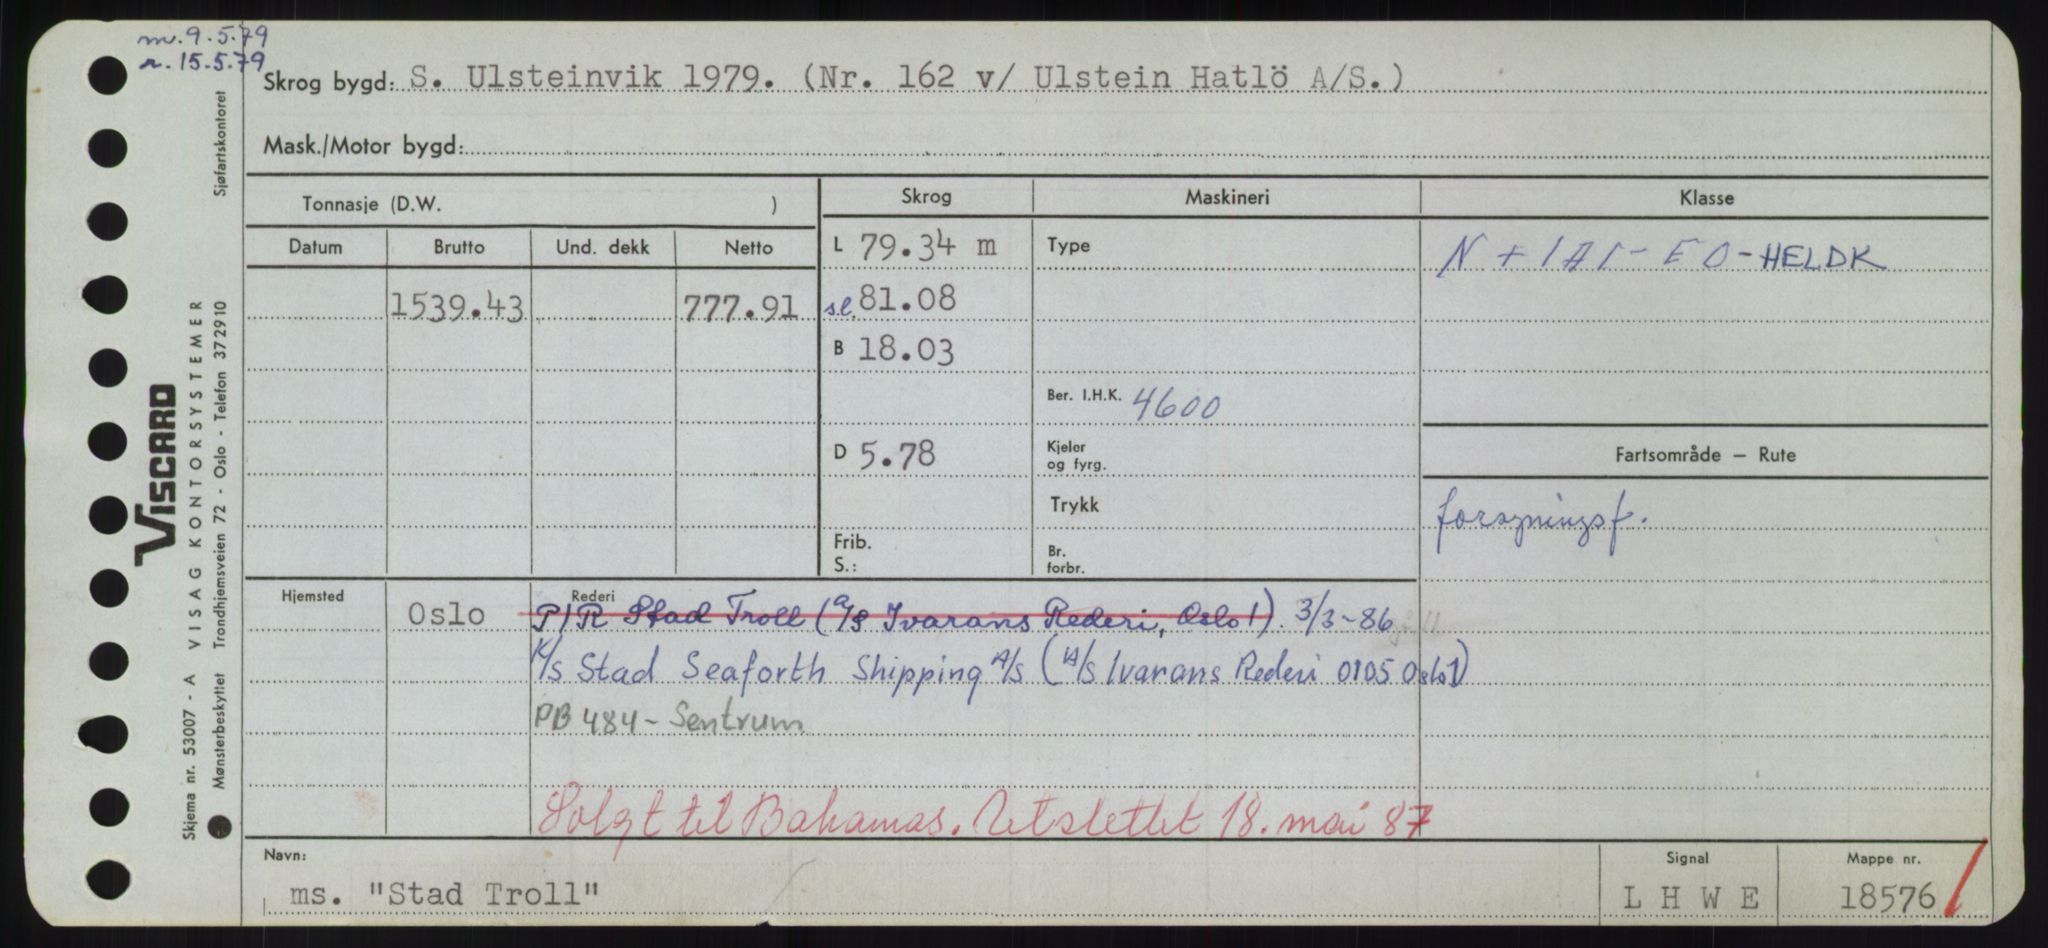 m. 9.5.79
r. 15.5.79
Skrog bygd: S. Ulsteinvik 1979. (Nr. 162 v/ Ulstein Hatlö A/S.)
Mask./Motor bygd:
Tonnasje (D.W. )
Skrog
Maskineri
Klasse
Datum
Brutto
Und. dekk
Netto
L 79.34 m
Type
N + 1A1 - EO - HELDK
1539.43
777.91
s.l. 81.08
B 18.03
Ber. I.H.K. 4600
D 5.78
Kjeler
og fyrg.
Fartsområde — Rute
Trykk
forsyningsf.
Frib.
S.:
Br.
forbr.
Hjemsted
Oslo
Rederi
P/R Stad Troll (A/S Ivarans Rederi, Oslo 1). 3/3-86
K/S Stad Seaforth Shipping A/S (A/S Ivarans Rederi 0105 Oslo 1)
PB 484 - Sentrum
Solgt til Bahamas. Utslettet 18. mai 87
Navn:
ms. "Stad Troll"
Signal
L H W E
Mappe nr.
18576
VISCARD
VISAG KONTORSYSTEMER
Sjøfartskontoret
Skjema nr. 53007 - A
Mønsterbeskyttet
Trondhjemsveien 72 - Oslo - Telefon 372910